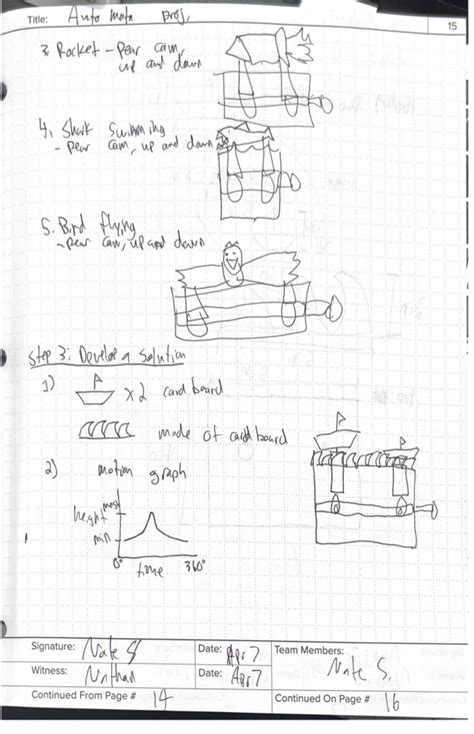 Title: Auto mata proj.
15
3. Rocket - Pear cam,
up and down
4. Shark Swimming
- pear cam, up and down
5. Bird flying
- pear cam, up and down
Step 3: Develop a solution
1) x2 card board
made of card board
2) motion graph
height
most
min
0° time 360°
Signature: Nate S
Date: Apr 7
Team Members:
Nate S.
Witness: Nathan
Date: Apr 7
Continued From Page # 14
Continued On Page # 16